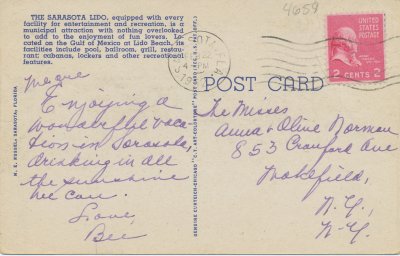 THE SARASOTA LIDO, equipped with every
facility for entertainment and recreation, is a
municipal attraction with nothing overlooked
to add to the enjoyment of fun lovers. Lo-
cated on the Gulf of Mexico at Lido Beach, its
facilities include pool, ballroom, grill, restau-
rant; cabanas, lockers and other recreational
features.
4659
UNITED
STATES
POSTAGE
2 CENTS 2
POST CARD
We are
Enjoying a
wonderful vaca
tion in Sarasota,
drinking in all
the sunshine
we can.
Love,
Bee
The Misses
Anna & Olive Norman
853 Cranford Ave
Wakefield,
N.Y.,
N.Y.
M. E. RUSSELL, SARASOTA, FLORIDA
GENUINE CURTEICH-CHICAGO "C.T. ART-COLORTONE" POST CARD (REG. U.S. PAT. OFF.)